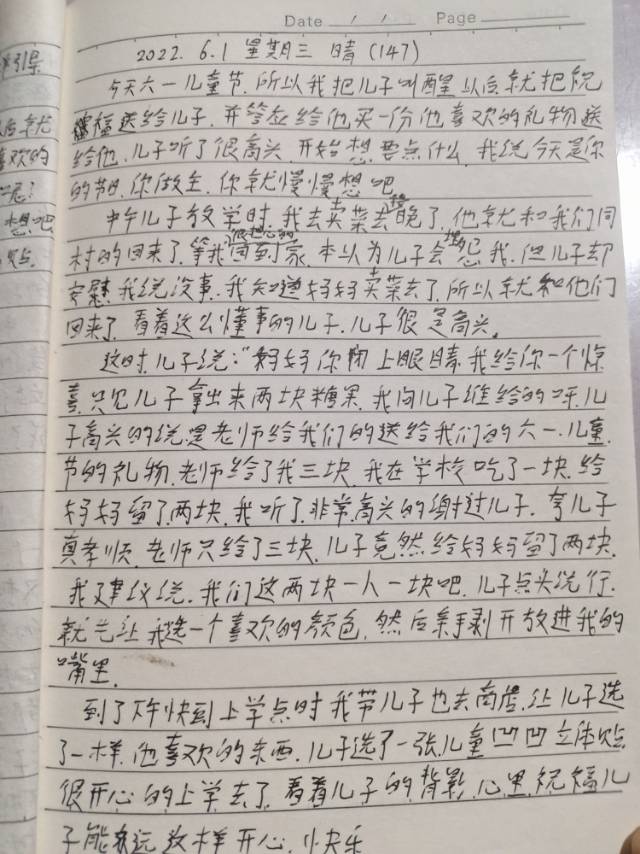 Date / / Page
2022. 6.1 星期三 晴 (147)
今天六一儿童节,所以我把儿子叫醒以后就把祝
福送给儿子,并答应给他买一份他喜欢的礼物送
给他,儿子听了很高兴,开始想要点什么,我说今天是你
的节日,你做主,你就慢慢想吧
中午儿子放学时,我去卖菜去接晚了,他就和我们同
村的回来了,等我很担心的回到家,本以为儿子会埋怨我,但儿子却
安慰我说没事,我知道妈妈卖菜去了,所以就和他们
回来了,看着这么懂事的儿子,儿子很是高兴,
这时,儿子说:“妈妈你闭上眼睛,我给你一个惊
喜,只见儿子拿出来两块糖果,我问儿子谁给的呀,儿
子高兴的说是老师给我们的送给我们的六一儿童
节的礼物,老师给了我三块,我在学校吃了一块,给
妈妈留了两块,我听了,非常高兴的谢过儿子,夸儿子
真孝顺,老师只给了三块,儿子竟然给妈妈留了两块,
我建议说,我们这两块一人一块吧,儿子点头说行,
就先让我选一个喜欢的颜色,然后亲手剥开放进我的
嘴里,
到了下午快到上学点时我带儿子也去商店,让儿子选
了一样,他喜欢的东西,儿子选了一张儿童凹凹立体贴
很开心的上学去了,看着儿子的背影,心里祝福儿
子能永远这样开心,快乐
引导
后就
喜欢的
呢?
想吧